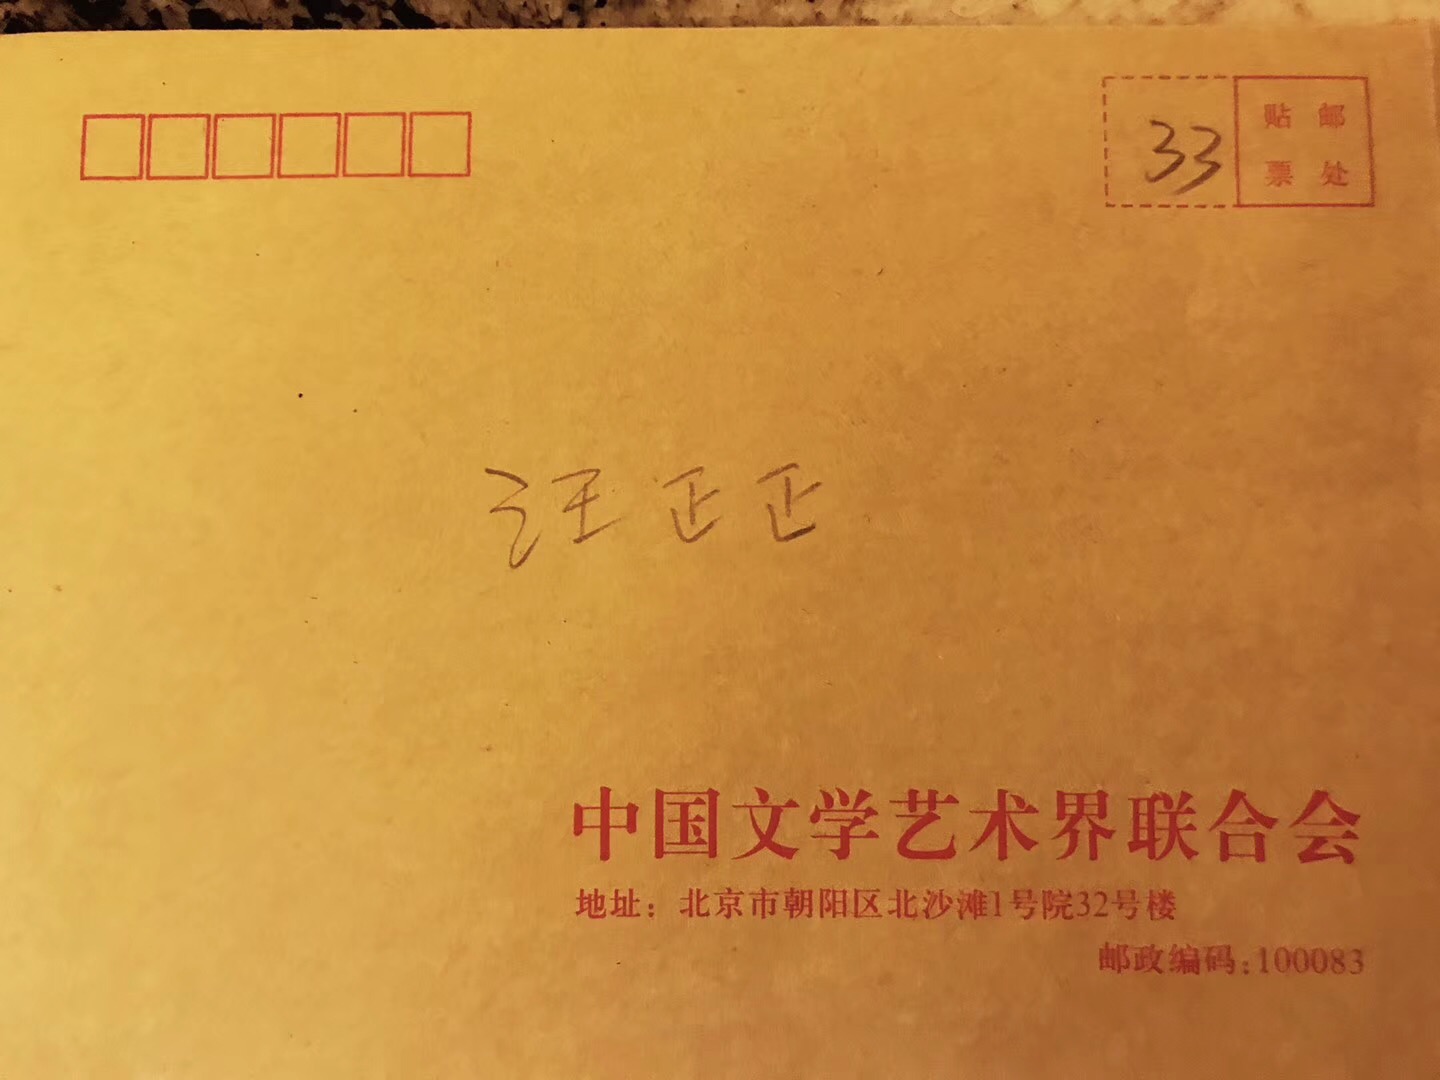 33
贴邮
票处
汪正正
中国文学艺术界联合会
地址：北京市朝阳区北沙滩1号院32号楼
邮政编码：100083